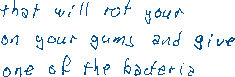 that will rot your
on your gums and give
one of the bacteria